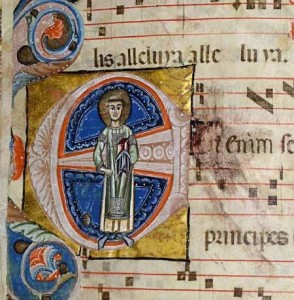 lis alleluya alle luya.
E t enim se
principes